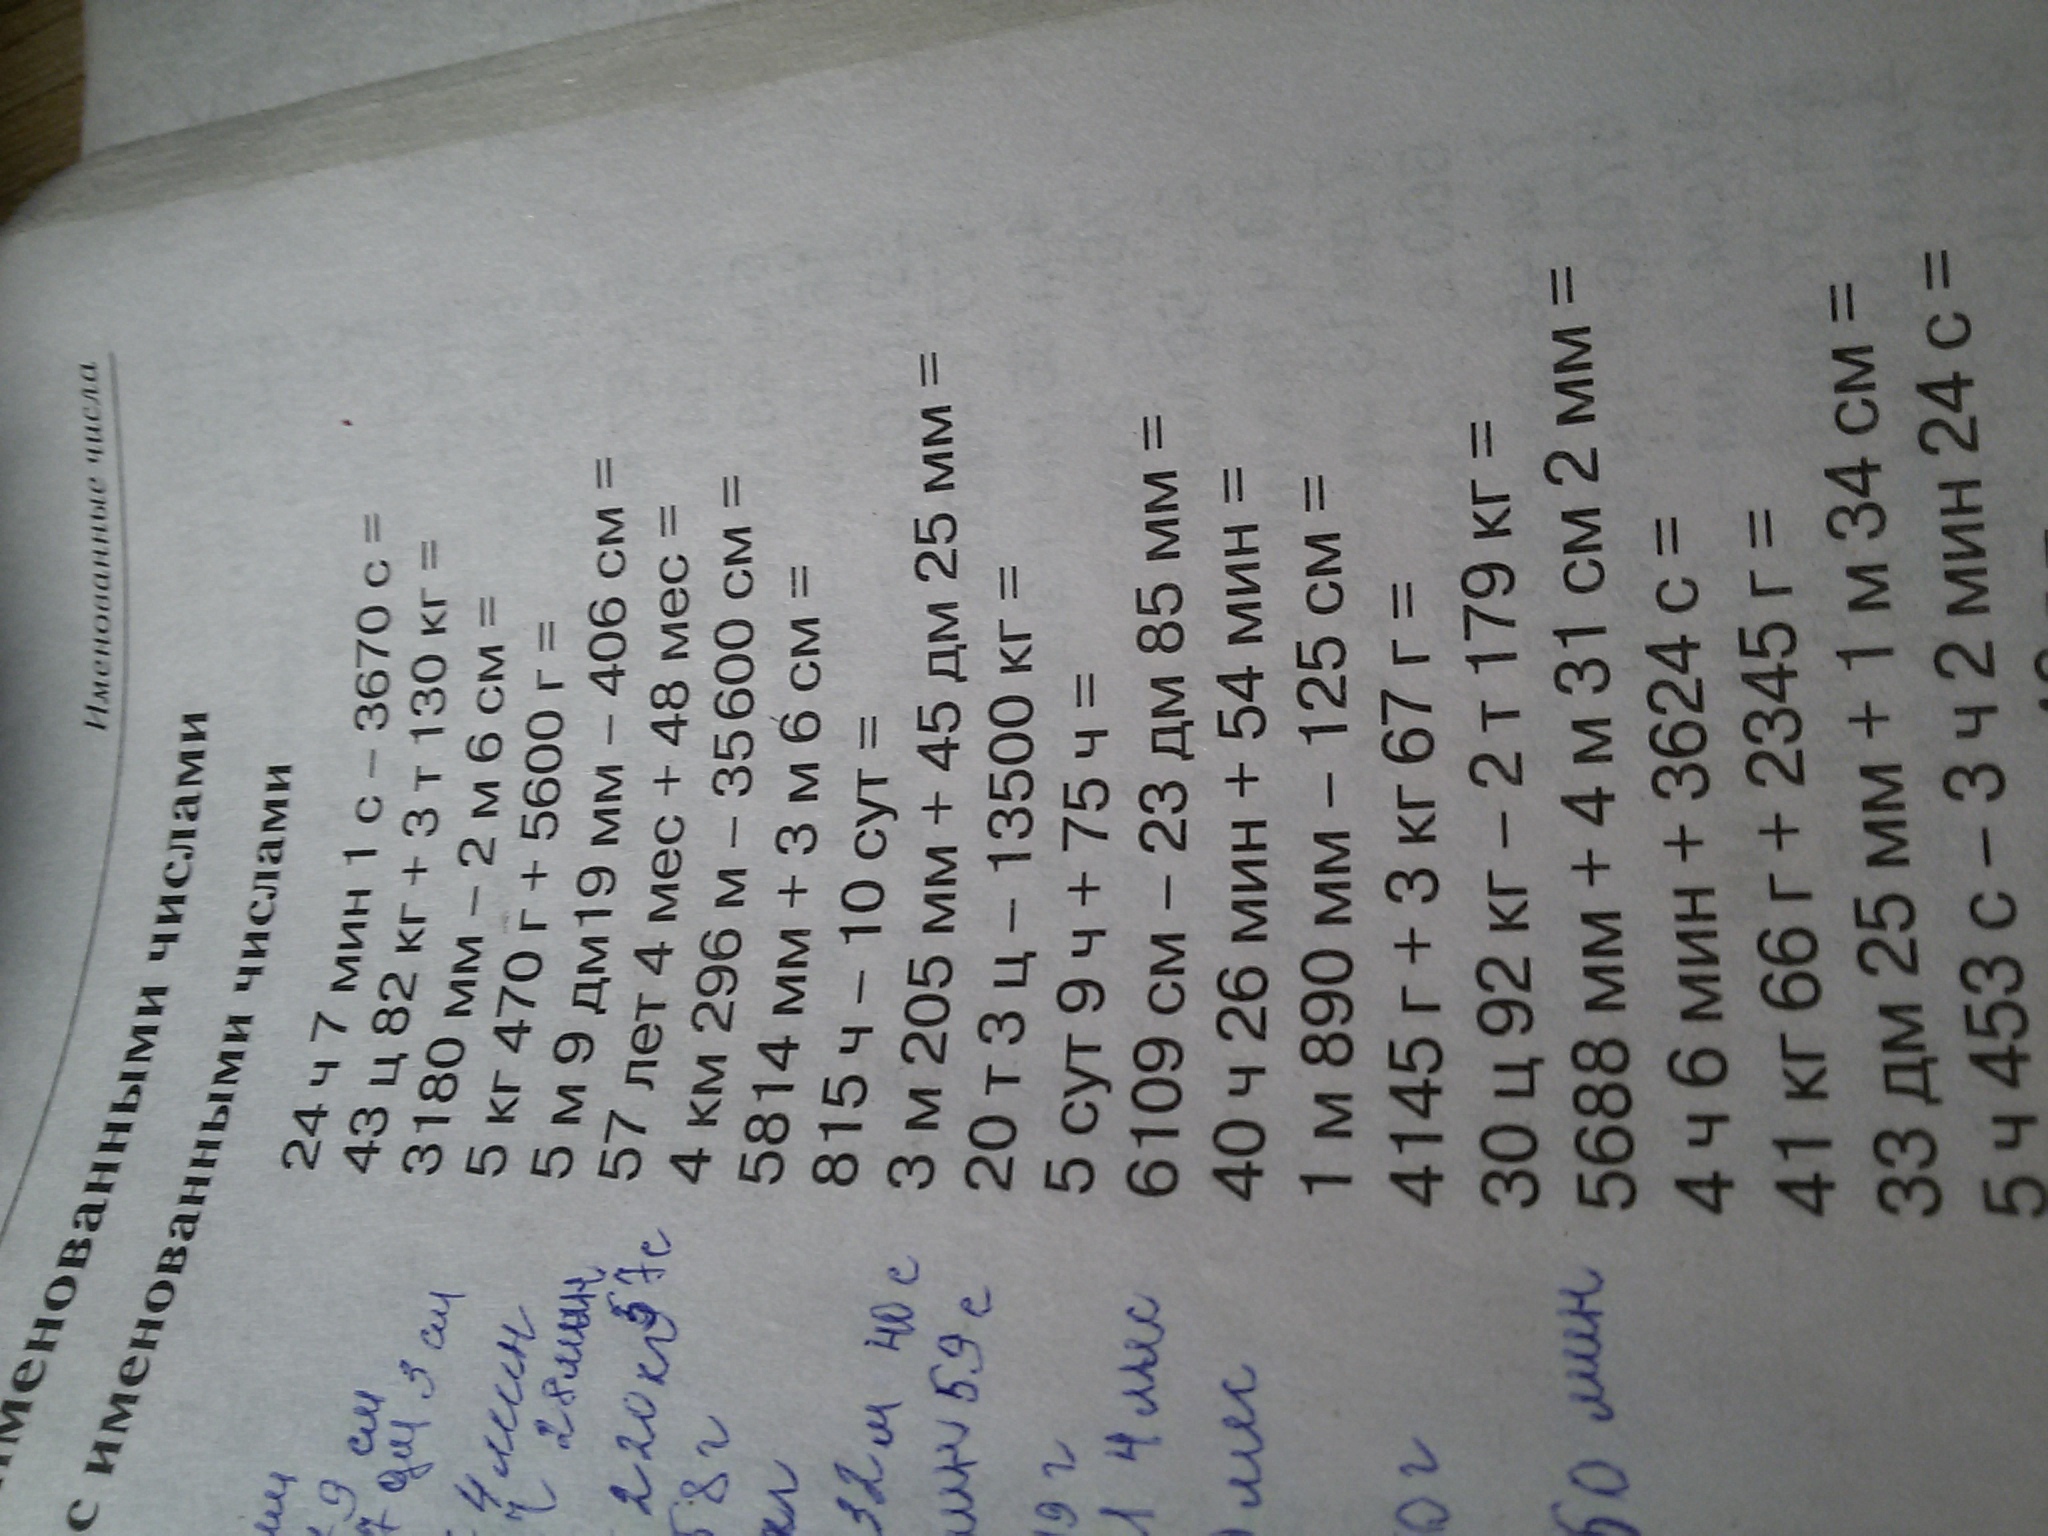 Именованные числа
именованными числами
с именованными числами
24 ч 7 мин 1 с – 3670 с =
43 ц 82 кг + 3 т 130 кг =
3180 мм – 2 м 6 см =
5 кг 470 г + 5600 г =
5 м 9 дм19 мм – 406 см =
57 лет 4 мес + 48 мес =
4 км 296 м – 35600 см =
5814 мм + 3 м 6 см =
815 ч – 10 сут =
3 м 205 мм + 45 дм 25 мм =
20 т 3 ц – 13500 кг =
5 сут 9 ч + 75 ч =
6109 см – 23 дм 85 мм =
40 ч 26 мин + 54 мин =
1 м 890 мм – 125 см =
4145 г + 3 кг 67 г =
30 ц 92 кг – 2 т 179 кг =
5688 мм + 4 м 31 см 2 мм =
4 ч 6 мин + 3624 с =
41 кг 66 г + 2345 г =
33 дм 25 мм + 1 м 34 см =
5 ч 453 с – 3 ч 2 мин 24 с =
9 см
7 дм 3 см
28 мин
220 кг
57 с
58 г
32 м 40 с
59 с
19 г
1 4 мес
мес
0 г
50 мин